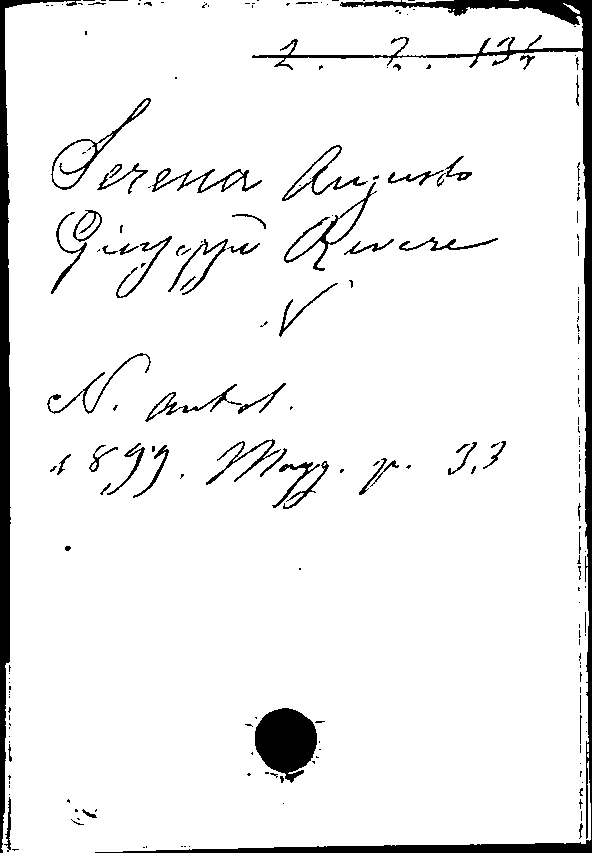 2. 2. 134
Serena Augusto
Giuseppe Revere
V
N. antol.
1899. Magg. p. 33